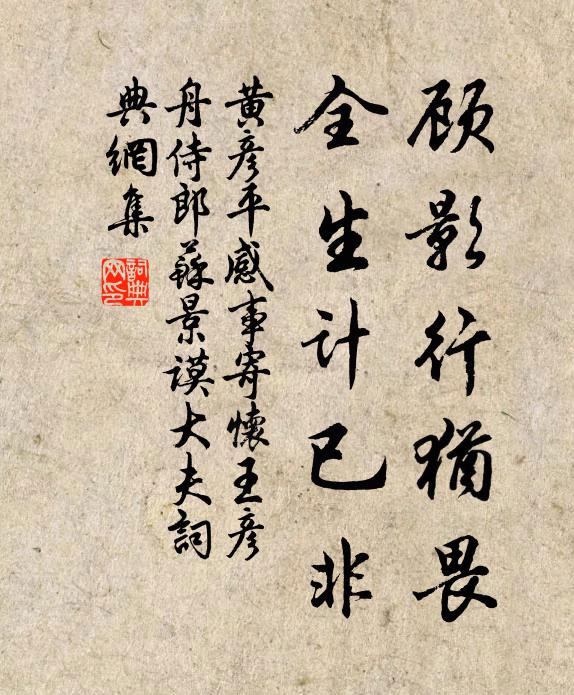 顾影行犹畏
全生计已非
黄彦平感事寄懷王彦
舟侍郎蘇景謨大夫詞
典網集
詞典網印